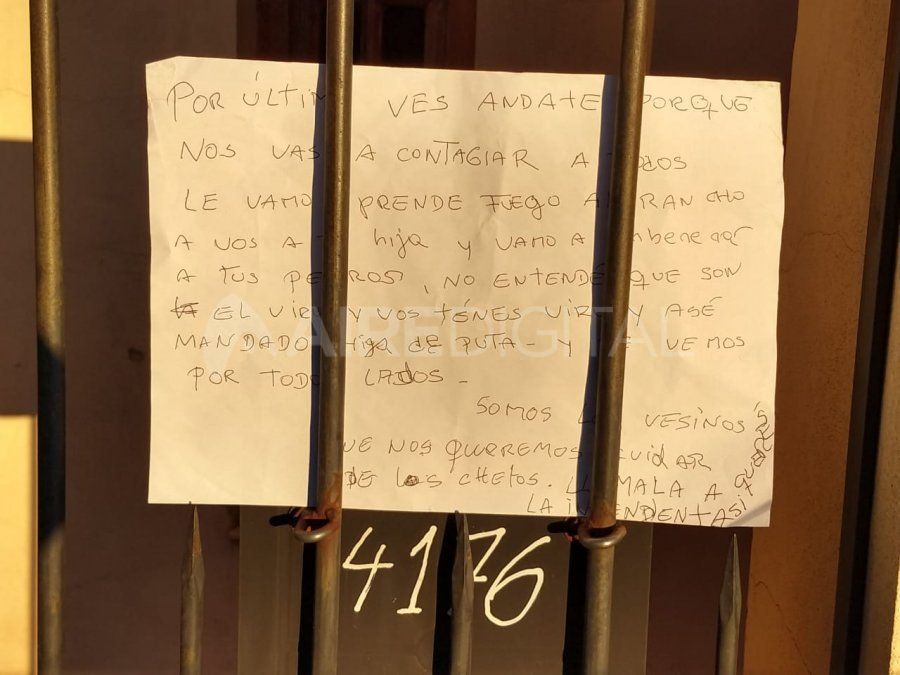 POR ÚLTIM VES ANDATE PORQUE
NOS VAS A CONTAGIAR A TODOS
LE VAMO PRENDE FUEGO A RANCHO
A VOS A hija y VAMO A mbenenar
A TUS PERROS, NO ENTENDÉ QUE SON
EL VIR Y VOS TÉNES VIR Y ASÉ
MANDADO Hija de PUTA - Y TE VEMOS
POR TODO LADOS -
SOMOS LO VESINOS
QUE NOS QUEREMOS CUIDAR
DE LOS CHETOS. LLAMALA A
LA INTENDENTA SI QUERÉS
AIREDIGITAL
4176